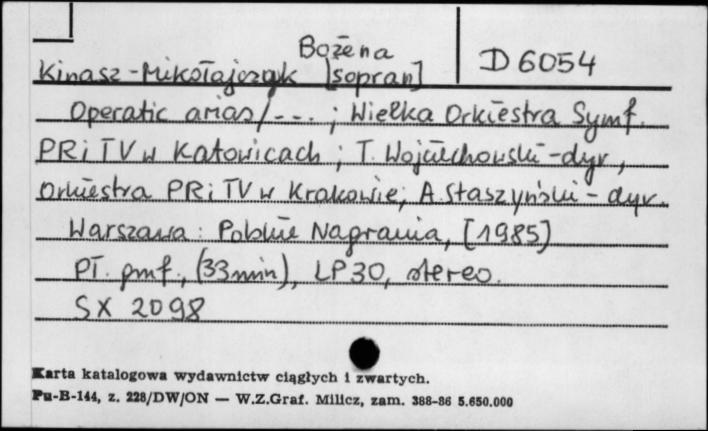 Bożena
Kinasz-Mikołajczyk [sopran]
D 6054
Operatic arias/---.; Wielka Orkiestra Symf.
PRiTV w Katowicach; T. Wojciechowski-dyr,
Orkiestra PRiTV w Krakowie; A. Staszyński-dyr.
Warszawa: Polskie Nagrania, [1985]
Pł. gmf., (33min), LP30, stereo.
SX 2098
Karta katalogowa wydawnictw ciągłych i zwartych.
Pu-B-144, z. 228/DW/ON — W.Z.Graf. Milicz, zam. 388-86 5.650.000